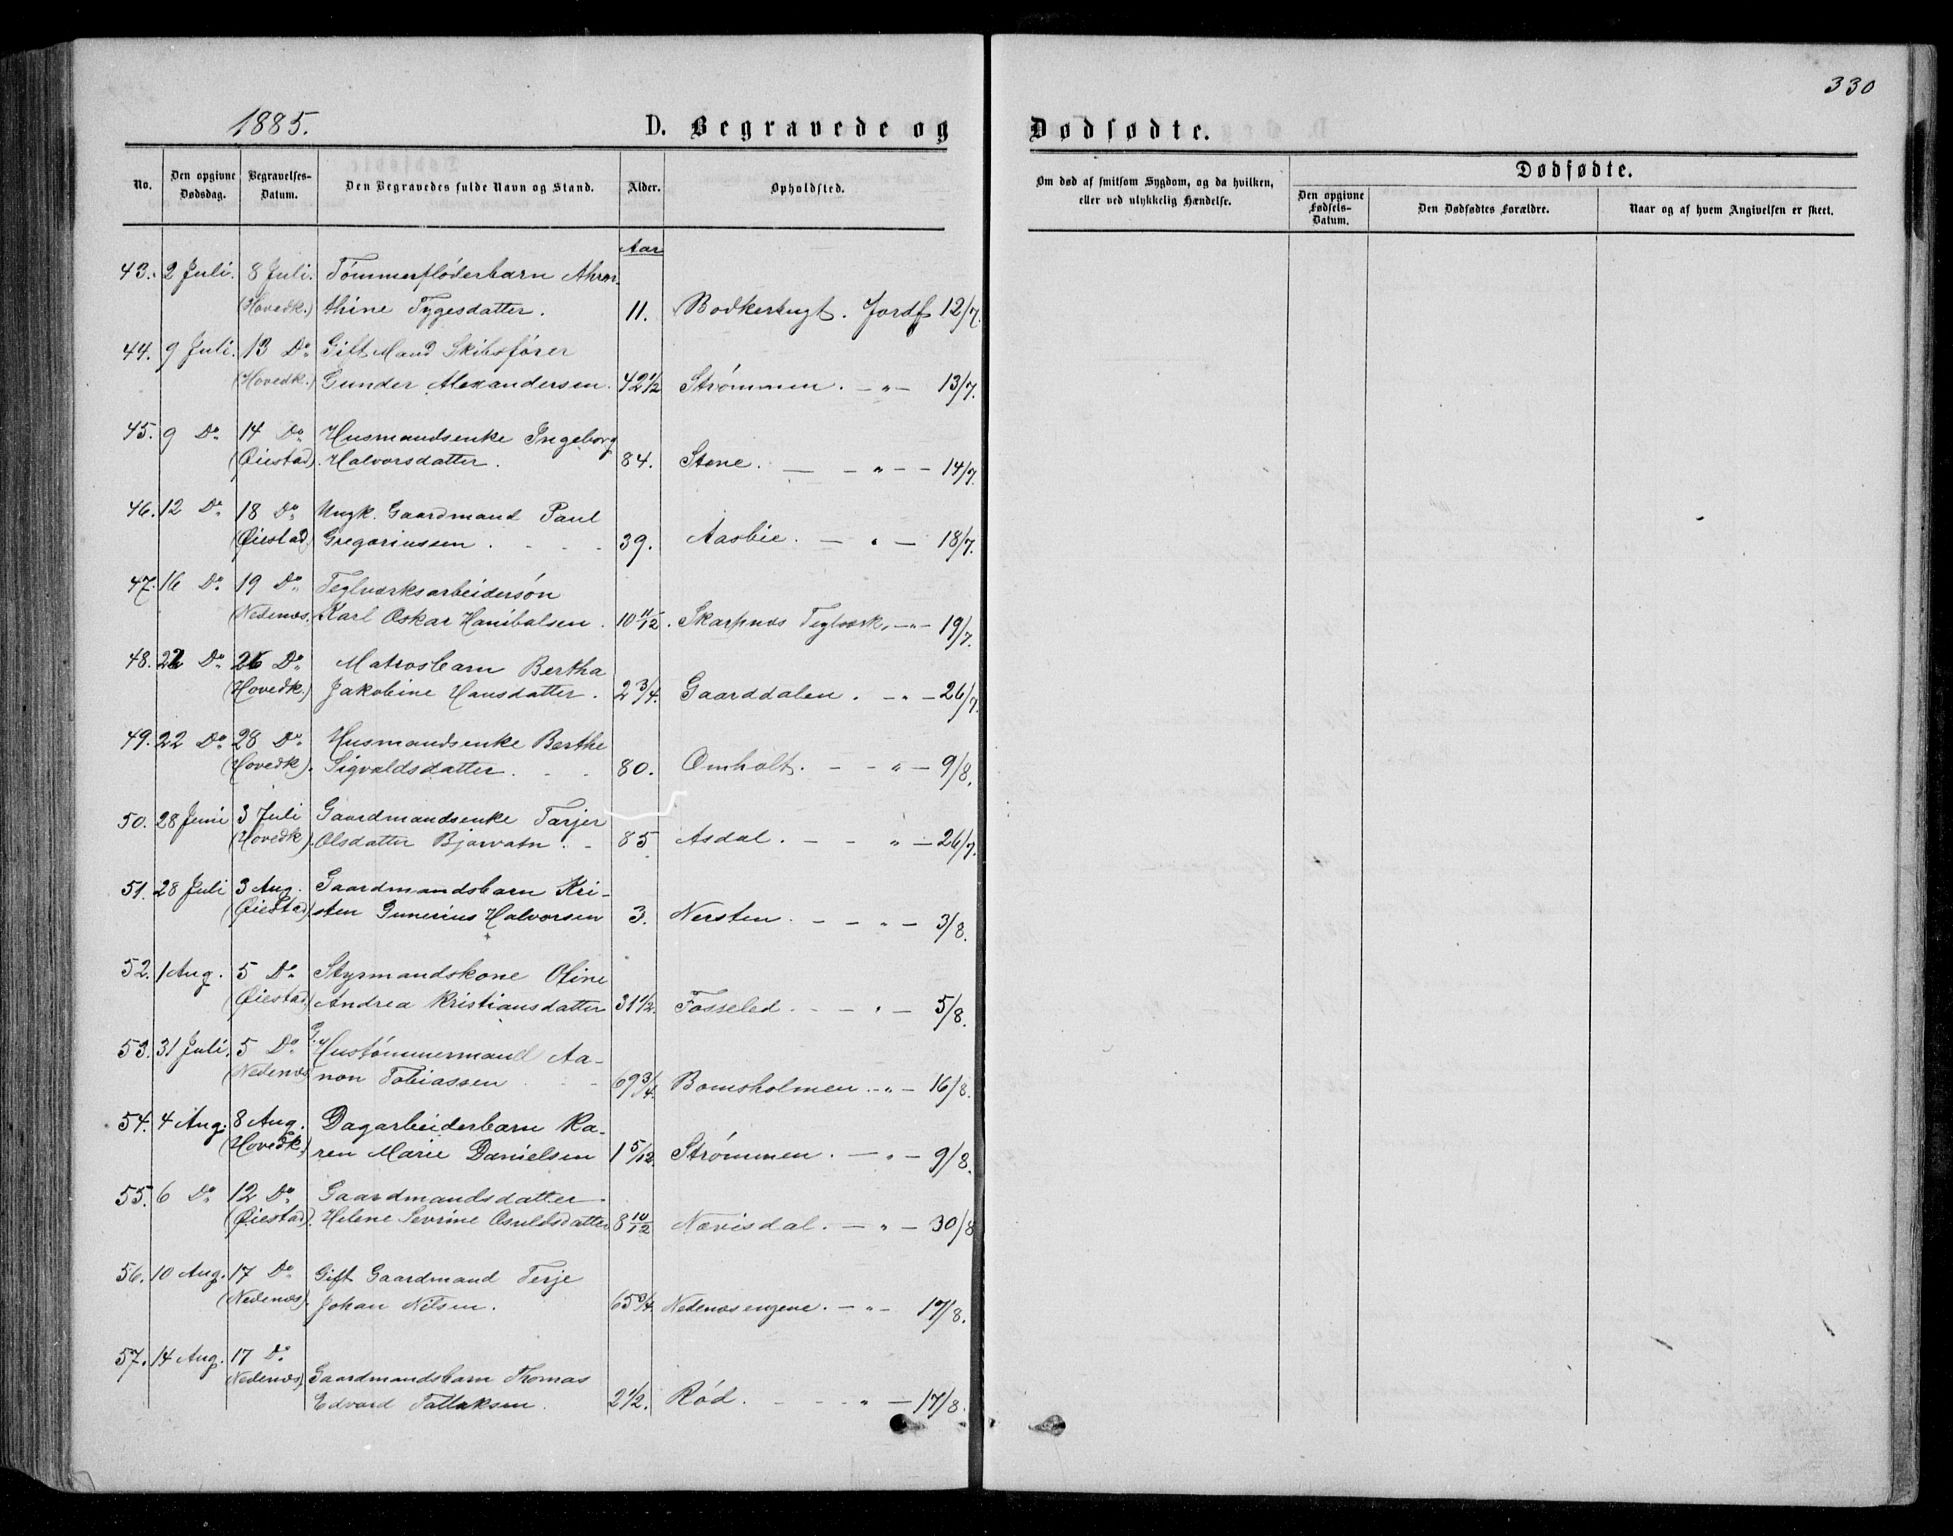 330
1885. D. Begravede og Dødfødte.
No. Den opgivne Dødsdag. Begravelses-Datum. Den Begravedes fulde Navn og Stand. Alder. Opholdsted.
Om død af smitsom Sygdom, og da hvilken, eller ved ulykkelig Hændelse.
Dødfødte.
Den opgivne Fødsels-Datum. Den Dødfødtes Forældre. Naar og af hvem Angivelsen er skeet.
Aar
43. 2 Juli. 8 Juli. Tømmerfløderbarn Ahren-
(Hovedk.) thine Tygesdatter. 11. Jordf 12/7.
44. 9 Juli. 13 Do. Gift Mand Skibsfører
(Hovedk.) Gunder Alexandersen. 42 1/2 Strømmen. — " — 13/7.
45. 9 Do. 14 Do. Husmandsenke Ingeborg
(Øiestad). Halvorsdatter. 84. Stene. — — " — 14/7.
46. 12 Do. 18 Do. Ungk. Gaardmand Paul
(Øiestad) Gregoriussen. 39. Aasbie. — " — 18/7.
47. 16 Do. 19 Do. Teglværksarbeidersøn
(Nedenæs. Karl Oskar Hanibalsen. 10 11/12. Skarpnæs Teglværk, — " — 19/7.
48. 22 Do. 26 Do. Matrosbarn Bertha
(Hovedk.) Jakobine Hansdatter. 2 3/4. Gaarddalen. — " — 26/7.
49. 22 Do. 28 Do. Husmandsenke Berthe
(Hovedk). Sigvaldsdatter. 80. Omholt. — — " — 9/8.
50. 28 Juni 3 Juli Gaardmandsenke Tarjer
(Hovedk). Olsdatter Bjorvatn. 85 Asdal. — — " — 26/7.
51. 28 Juli 3 Aug. Gaardmandsbarn Kri-
(Øiestad) sten Gunerius Halvorsen 3. Nersten. — — " — 3/8.
52. 1 Aug. 5 Do. Styrmandskone Ofine
(Øiestad.) Andrea Kristiansdatter 31 1/2. Fosseled. — — " — 5/8.
53. 31 Juli. 5 Do. G. Hustømmermand Aa-
(Nedenæs) non Tobiassen 69 3/4. Bomsholmen. — " — 16/8.
54. 4 Aug. 8 Aug. Dagarbeiderbarn Ka-
(Hovedk.) ren Marie Danielsen 1 5/12. Strømmen. — " — 9/8.
55. 6 Do. 12 Do. Gaardmandsdatter
(Øiestad). Helene Sevrine Osuldsdatter 8 10/12 Nævisdal. — " — 30/8
56. 10 Aug. 17 Do. Gift Gaardmand Terje
(Nedenæs). Johan Nilsen. 65 3/4. Nedenæsengene. — " — 17/8.
57. 14 Aug. 17 Do.
Nedenæs) Gaardmandsbarn Thomas
Edvard Tallaksen. 2 1/2. Rød. — — " — 17/8.